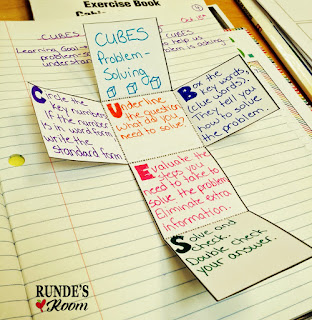 Exercise Book
CUBES
CUBES
Learning Goal
problem-so
understan
to help us
problem is asking.
CUBES
Problem-
Solving
Circle the
#s. If the number
is in word form
write the
standard form
Underline
the question.
What do you
need to solve.
Box the
key words
(clue words).
They tell you
how to solve
the problem.
Evaluate the
steps you
need to take to
solve the problem.
Eliminate extra
information.
Solve and
check.
Double check
your answer.
RUNDE'S
Room